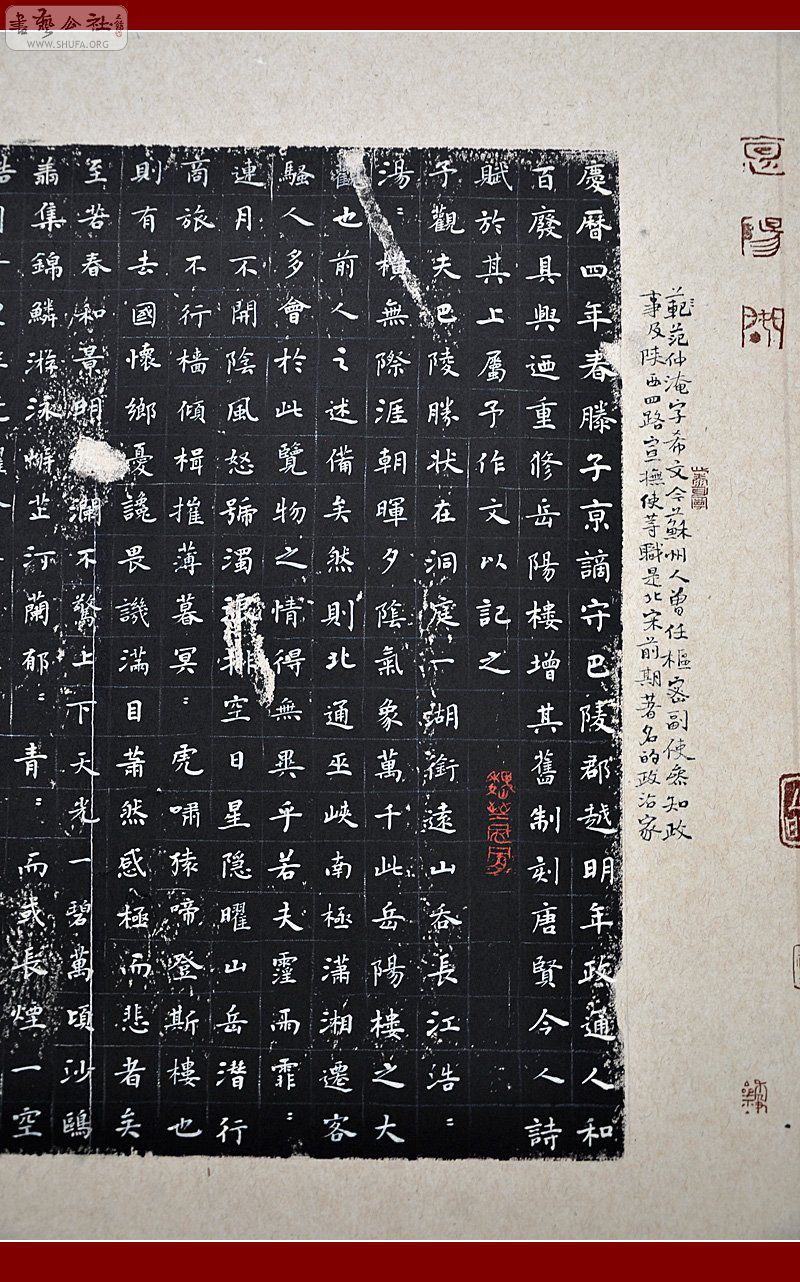 書藝公社
WWW.SHUFA.ORG
範范仲淹字希文今蘇州人曾任樞密副使參知政
事及陝西四路宣撫使等職是北宋前期著名的政治家
慶曆四年春滕子京謫守巴陵郡越明年政通人和
百廢具興迺重修岳陽樓增其舊制刻唐賢今人詩
賦於其上屬予作文以記之
予觀夫巴陵勝狀在洞庭一湖銜遠山吞長江浩：
湯：橫無際涯朝暉夕陰氣象萬千此岳陽樓之大
觀也前人之述備矣然則北通巫峽南極瀟湘遷客
騷人多會於此覽物之情得無異乎若夫霪雨霏：
連月不開陰風怒號濁浪排空日星隱曜山岳潛行
商旅不行檣傾楫摧薄暮冥：虎嘯猿啼登斯樓也
則有去國懷鄉憂讒畏譏滿目蕭然感極而悲者矣
至若春和景明瀾不驚上下天光一碧萬頃沙鷗
集錦鱗游泳芷汀蘭郁：青：而或長煙一空